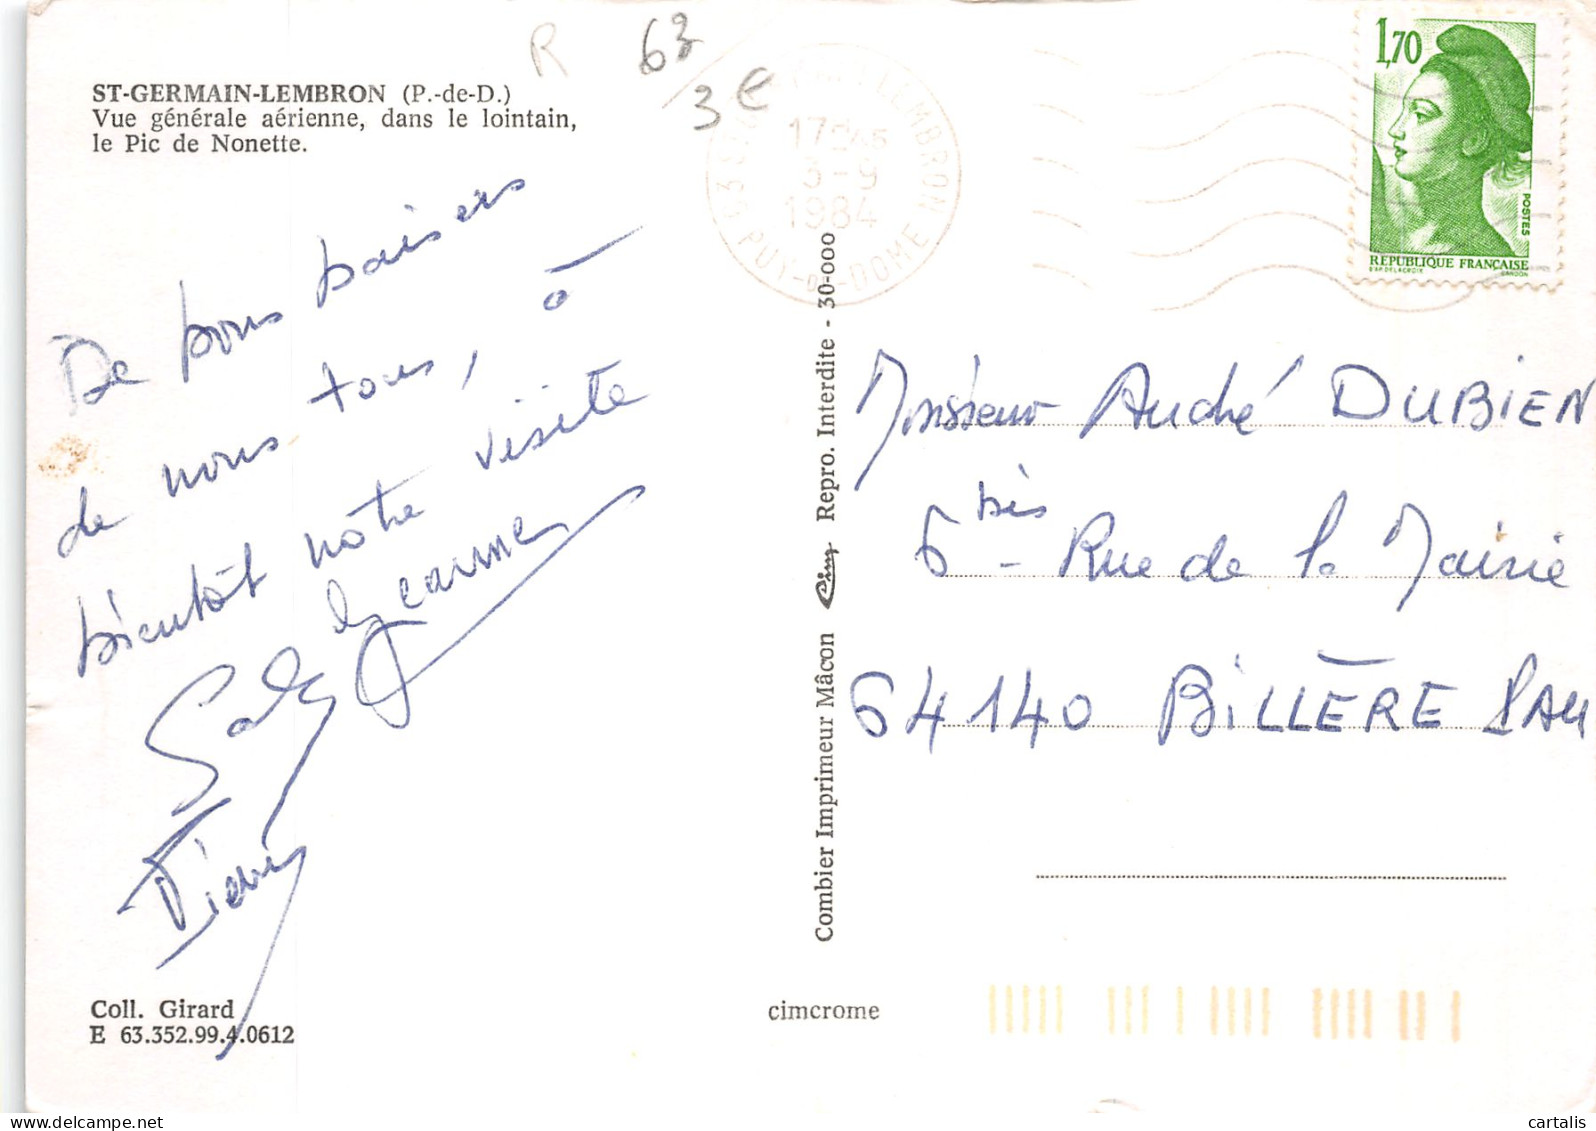 R 63
3€
ST-GERMAIN-LEMBRON (P.-de-D.)
Vue générale aérienne, dans le lointain,
le Pic de Nonette.
LEMBRON
17H45
3-9
1984
63 PUY-DE-DOME
1,70
POSTES
REPUBLIQUE FRANÇAISE
D'AP. DELACROIX GANDON
De bons baisers
de nous tous, à
bientôt notre visite
Jeanne
Gaby
Combier Imprimeur Mâcon Cim Repro. Interdite - 30-000
Monsieur André DUBIEN
6 bis - Rue de la Mairie
64140 BILLÈRE PAU
Coll. Girard
E 63.352.99.4.0612
cimcrome
www.cartalis.com